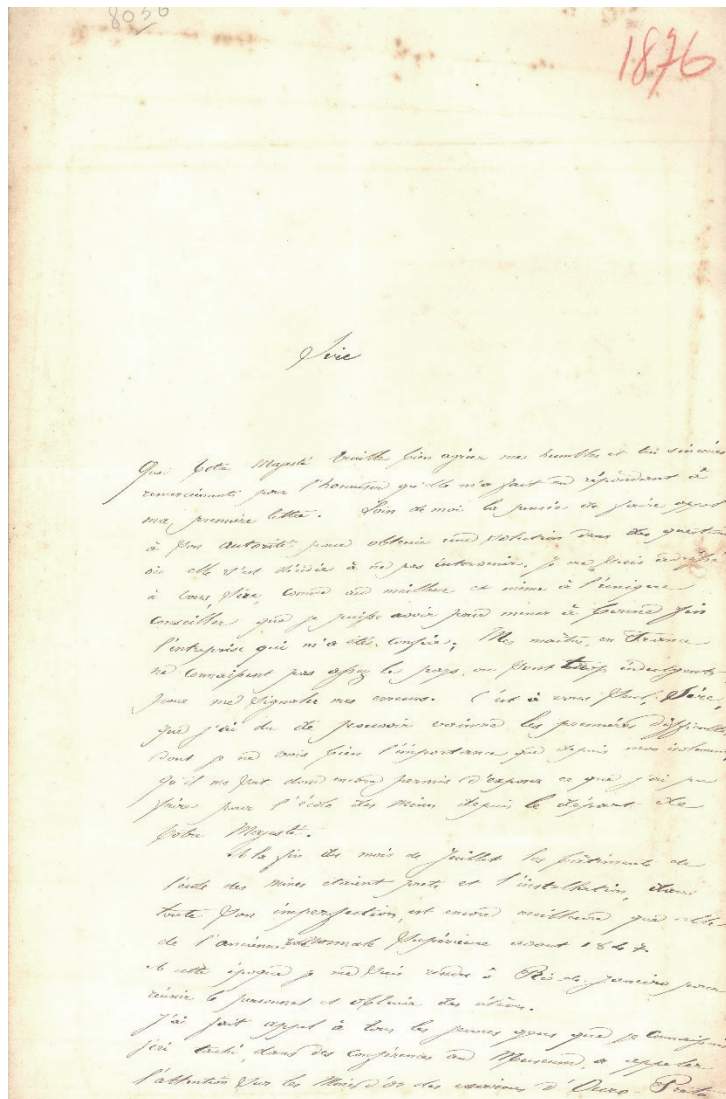 8056
1876
Sire
Que Votre Majesté veuille bien agréer mes humbles et bien sincères
remerciments pour l'honneur qu'elle m'a fait en répondant à
ma première lettre. Loin de moi la pensée de faire appel
à son autorité pour obtenir une solution dans des questions
où elle s'est décidée à ne pas intervenir. Je me suis adressé
à vous Sire, comme au meilleur et même à l'unique
conseiller que je puisse avoir pour mener à bonne fin
l'entreprise qui m'a été confiée; Mes maîtres, en France
ne connaissent pas assez le pays, ou sont trop indulgents
pour me signaler mes erreurs. C'est à vous seul, Sire,
que j'ai du de pouvoir vaincre les premières difficultés
dont je ne vois bien l'importance que depuis mon isolement,
qu'il me soit donc encore permis d'exposer ce que j'ai pu
faire pour l'école des mines depuis le départ de
Votre Majesté.
A la fin du mois de Juillet les bâtiments de
l'école des mines étaient prets et l'installation, dans
toute son imperfection, est encore meilleure que celle
de l'ancienne normale Supérieure avant 1847.
A cette époque je me suis rendu à Rio-de-Janeiro pour
réunir le personnel et obtenir des élèves.
J'ai fait appel à tous les jeunes gens que je connaissais
j'ai taché, dans des conférences au Museum, d'appeler
l'attention sur les des environs d'Ouro-Preto